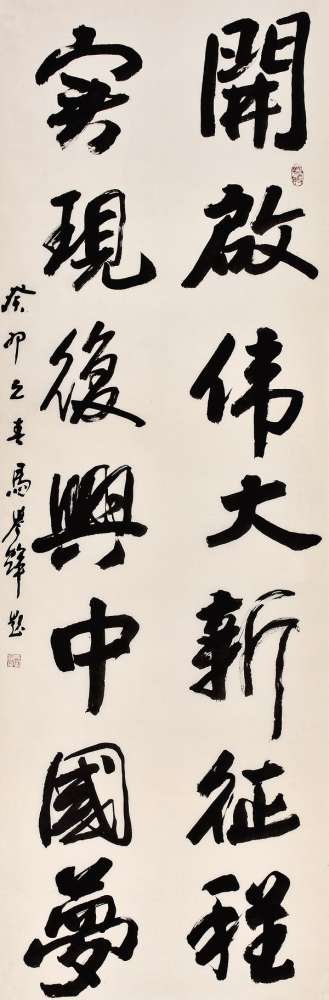 開啟伟大新征程
實現復興中國夢
癸卯之春馬學鋒題